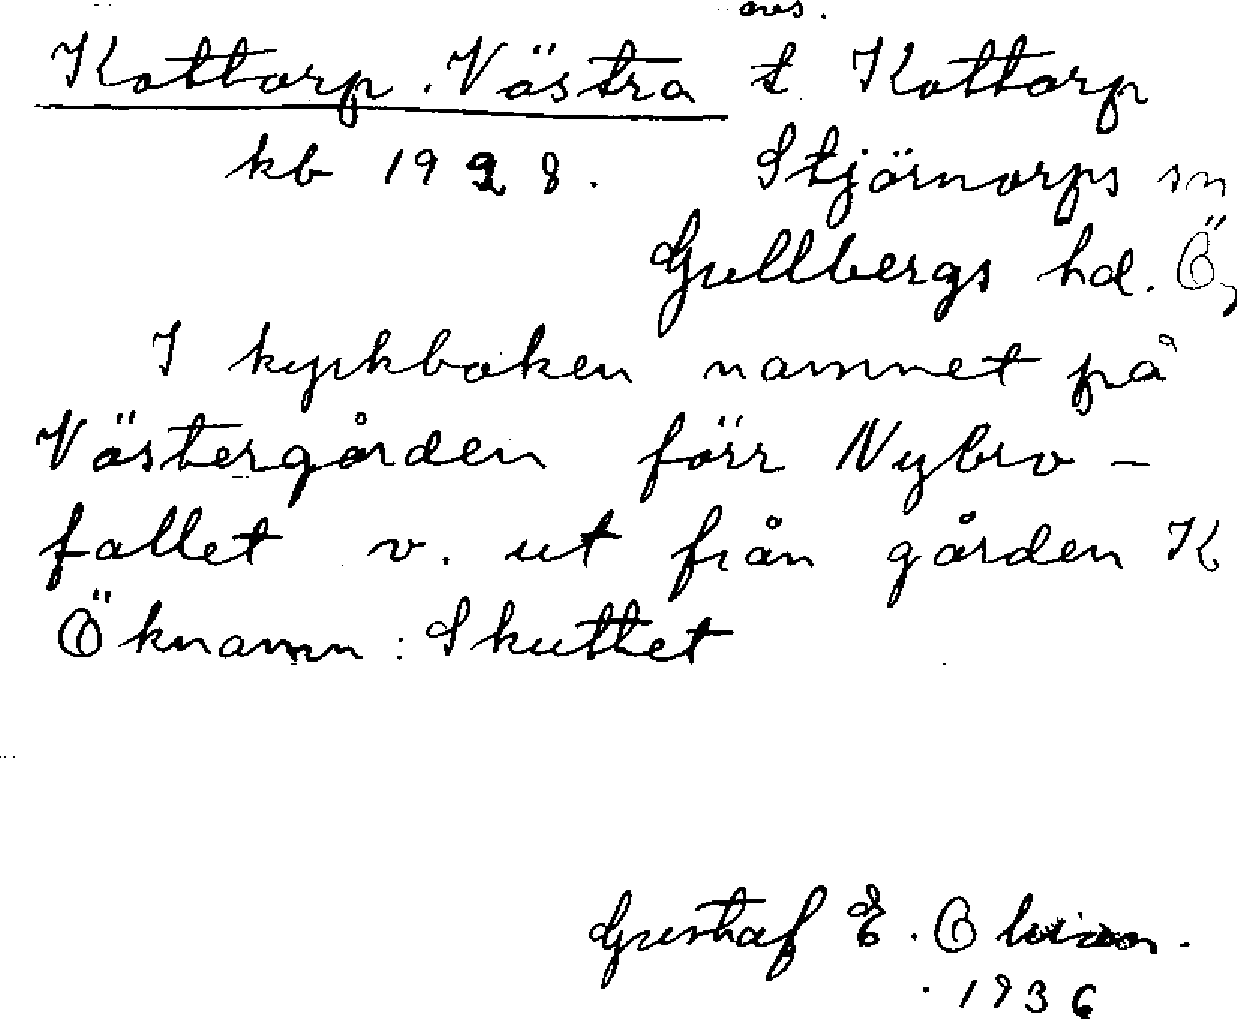 avs.
Kottorp. Västra t. Kottorp
kb 1928. Stjärnorps sn
Gullbergs hd. Ög
I kyrkboken namnet på
Västergården förr Nybro-
fallet v. ut från gården K
Öknamn: Skuttet
Gustaf E.
1936